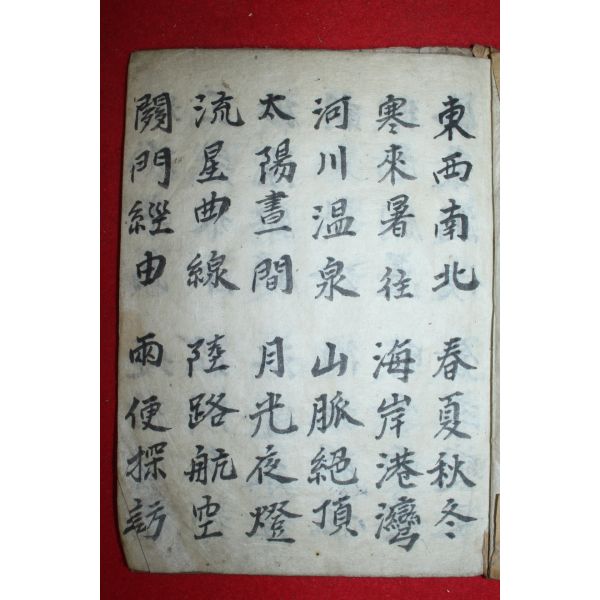 東西南北 春夏秋冬
寒來暑往 海岸港灣
河川温泉 山脈絕頂
太陽晝間 月光夜燈
流星曲線 陸路航空
關門經由 雨便探訪